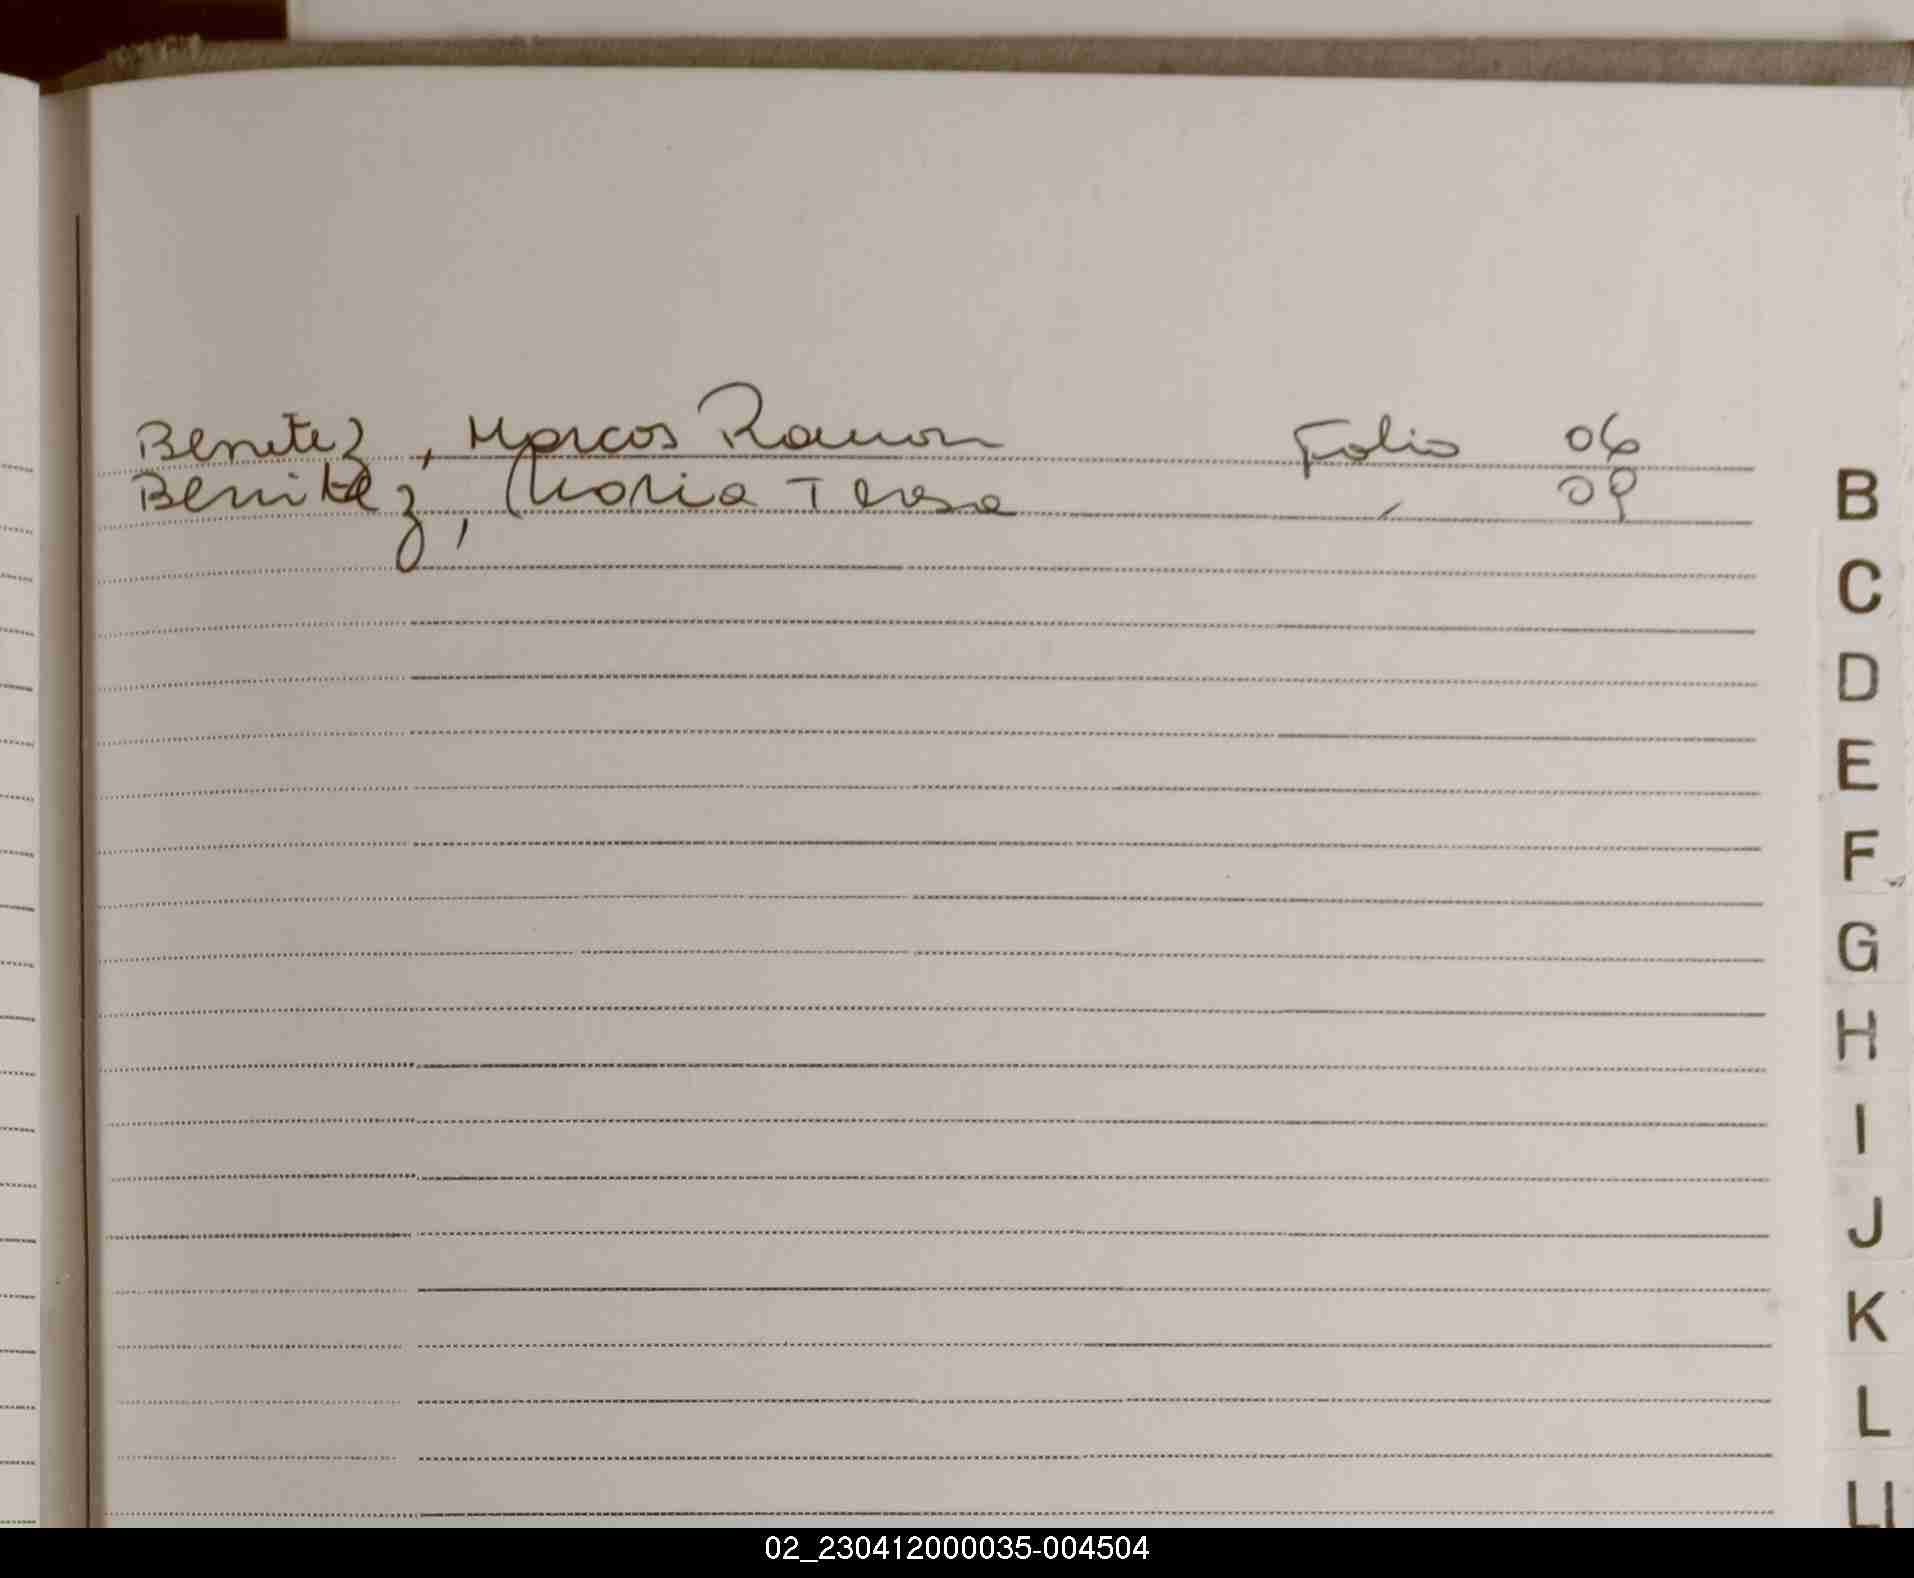 Benitez, Marcos Ramon Folio 06
Benitez, Maria Teresa 09
B
C
D
E
F
G
H
I
J
K
L
LL
02_230412000035-004504